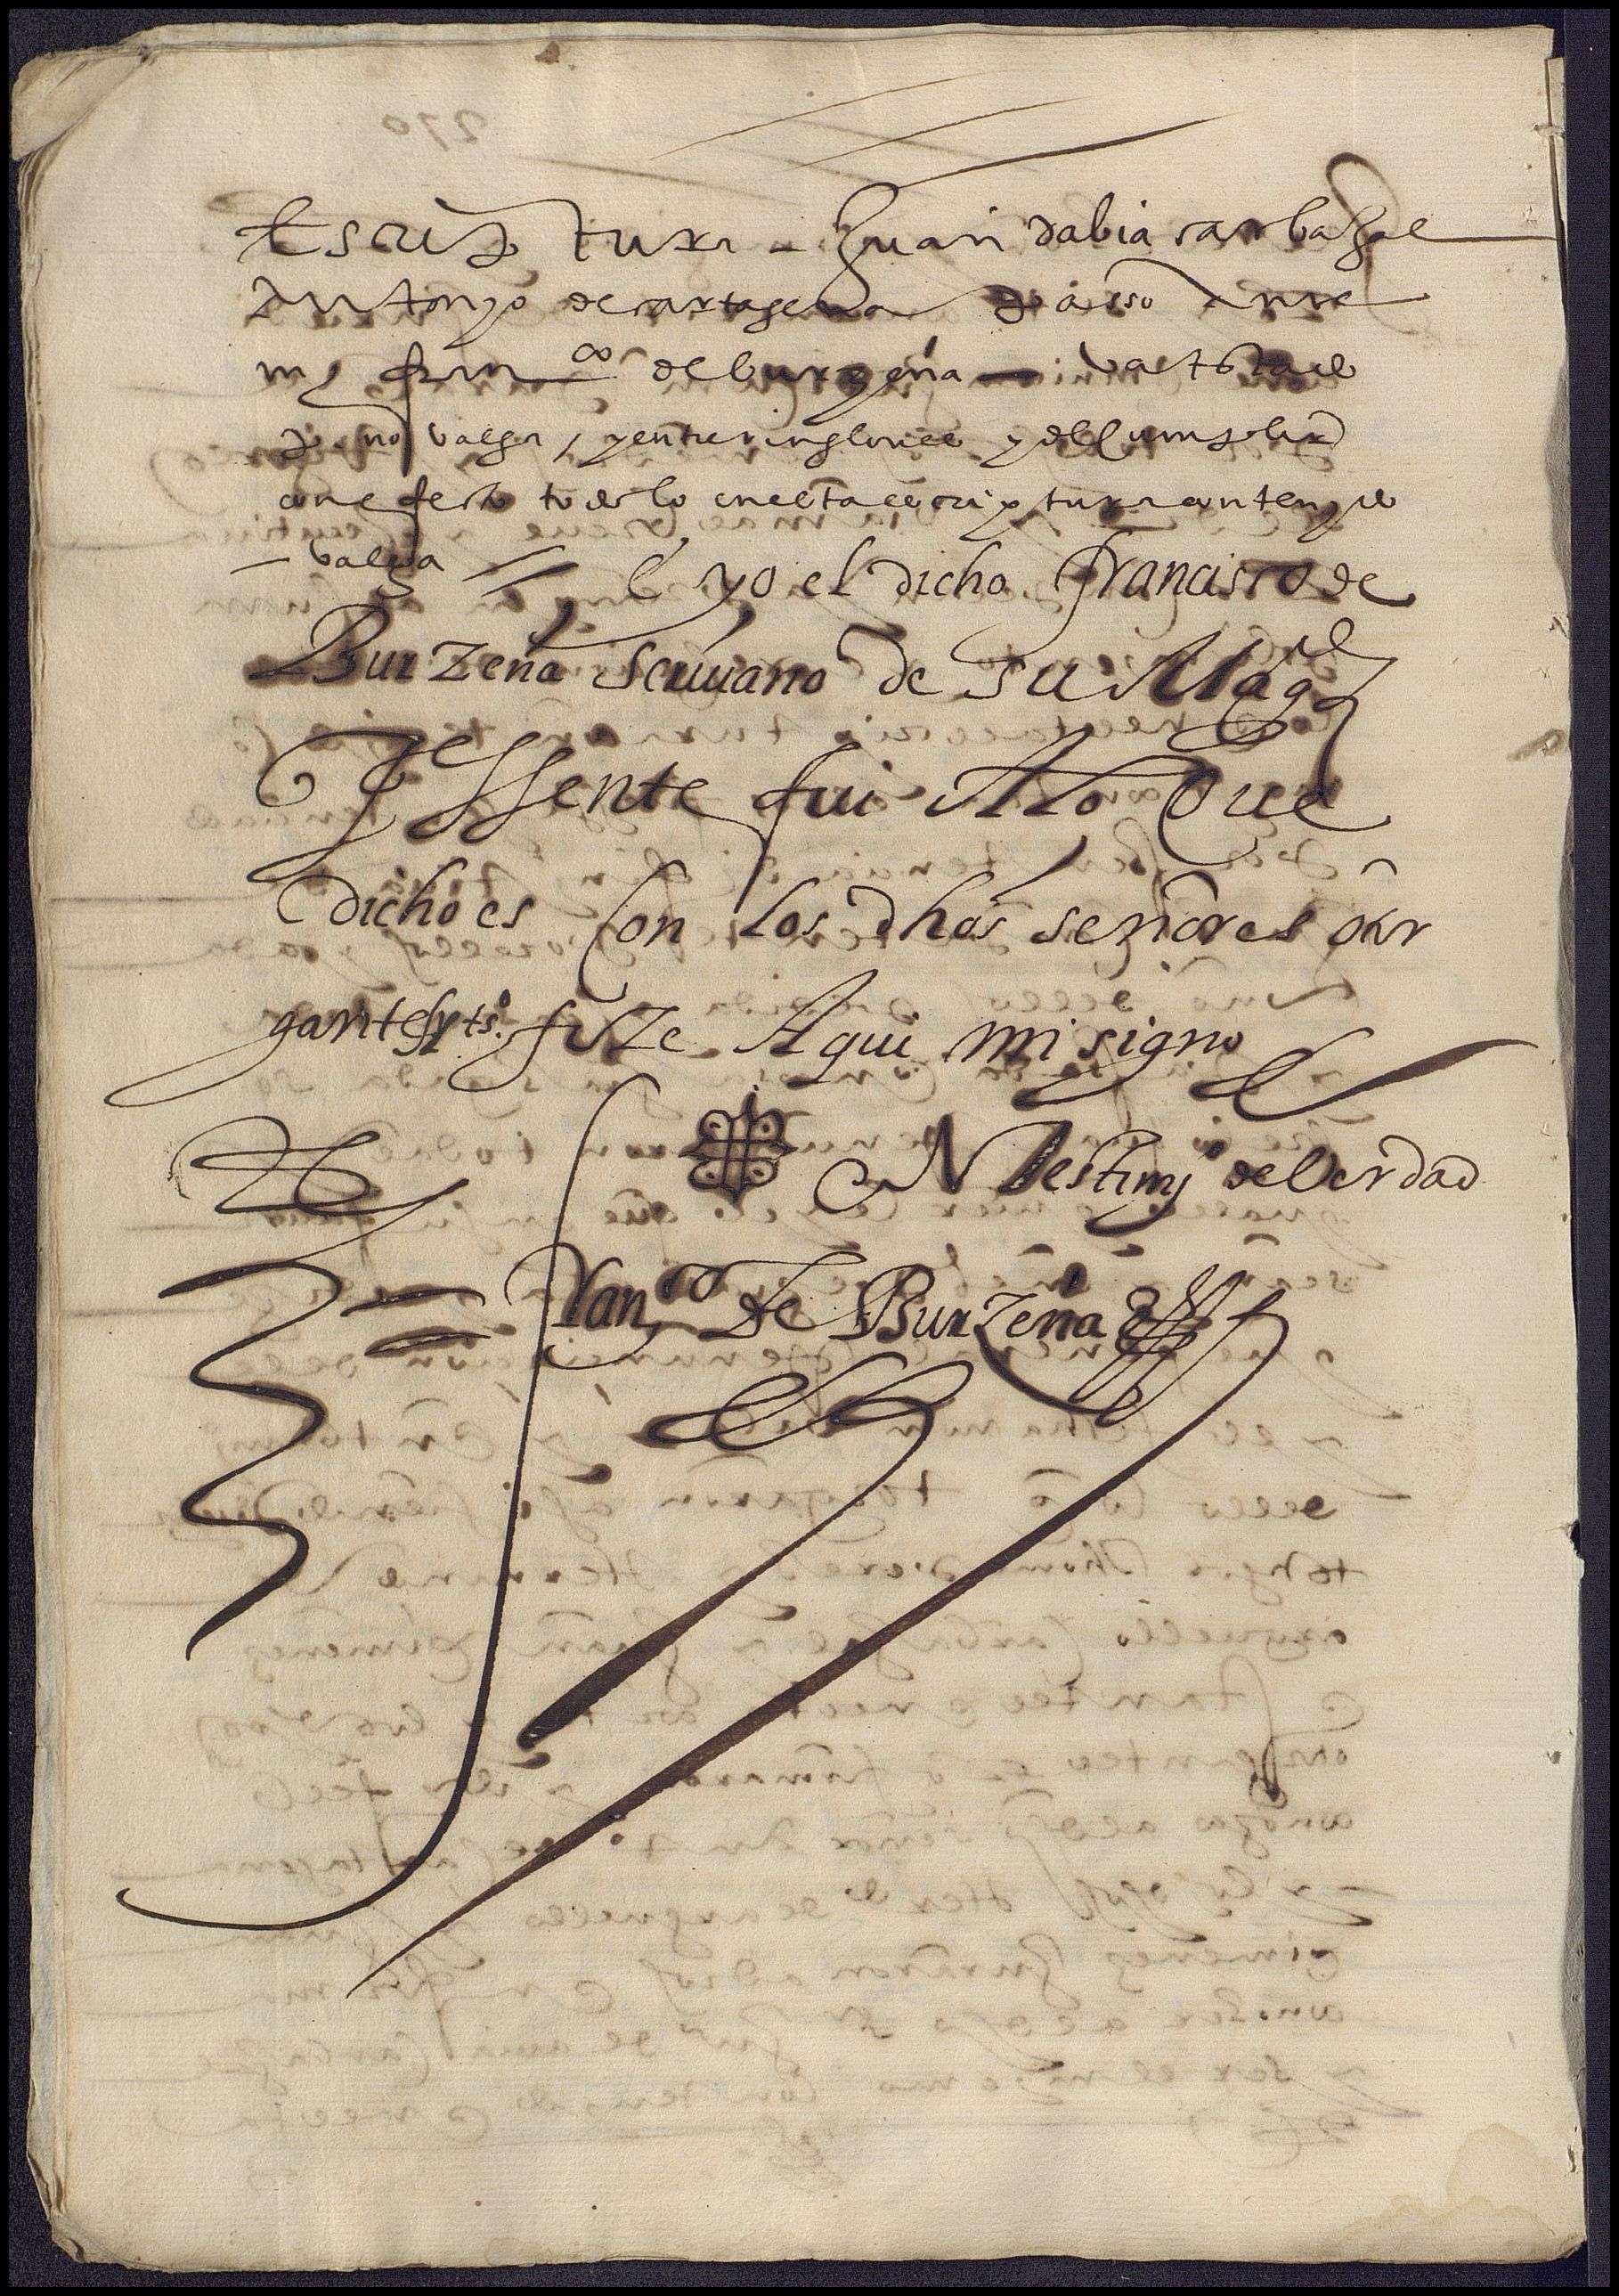 escriptura – Juan dabia carbajal
Antonyo de cartagena Passo ante
my fran^co de burzeña — va testado
no valga / y entre renglones y del cumplir
con efecto todo lo en esta escriptura contenydo
– valga // E yo el dicho Francisco de
Burzeña scrivano de su Mag^d
Pressente fui A lo que
dicho es Con los dhos señores otor
gantes y ts° fize Aqui mi signo
EN testimy° de Verdad
Fran^co de Burzeña